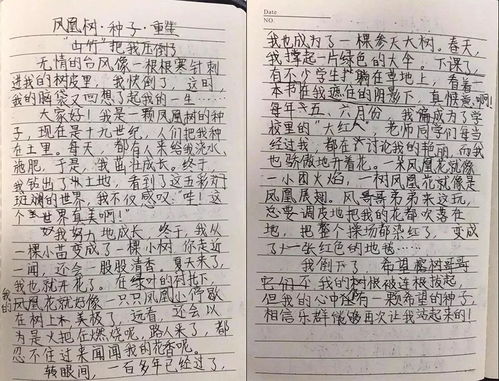 凤凰树·种子·重生
"山竹"把我压倒了
无情的台风像一根根寒针刺
进我的树皮里，我快倒了，这时，
我的脑袋又回想了起我的一生……
大家好！我是一颗凤凰树的种
子，现在是十九世纪，人们把我种
在土里。每天，都有人来给我浇水，
施肥，于是，我茁壮成长。终于，
我钻出了土地，看到了这五彩
斑斓的世界，我不仅感叹："哇！这
个世界真美啊！"
我努力地成长，终于，我从
一棵小苗变成了一棵小树，你走近
一闻，还会一股股清香。夏天来了，
我也就开花了。在绿叶的衬托下，
我的凤凰花就好像一只只凤凰小停歇
在树上，美极了，远看，还会以
为是火把在燃烧呢，路人来了，都
忍不住过来闻闻我的花香呢。
转眼间，一百多年已经过了，
Date
NO.
我也成为了一棵参天大树。春天，
我撑起一片绿色的大伞。下课了，
有不少学生躺在草地上，看着一
本书在我遮住的阴影下，真惬意啊！
每年五、六月份，我偏成为了学
校里的"大红人"，老师同学们每当
经过我，都在讨论我的艳丽，而我
也骄傲地开着花。一朵凤凰花就像
一小团火焰，一树凤凰花就像是
凤凰展翅。风哥哥弟弟来这玩，
总要调皮地把我的花都吹落在
地，把整个操场都染红了，变成
了一张红色的地毯……
我倒下了，希望榕树哥哥
它们不我的树根被连根拔起，
但我的心中还有一颗希望的种子，
相信乐群能够再次让我站起来的！